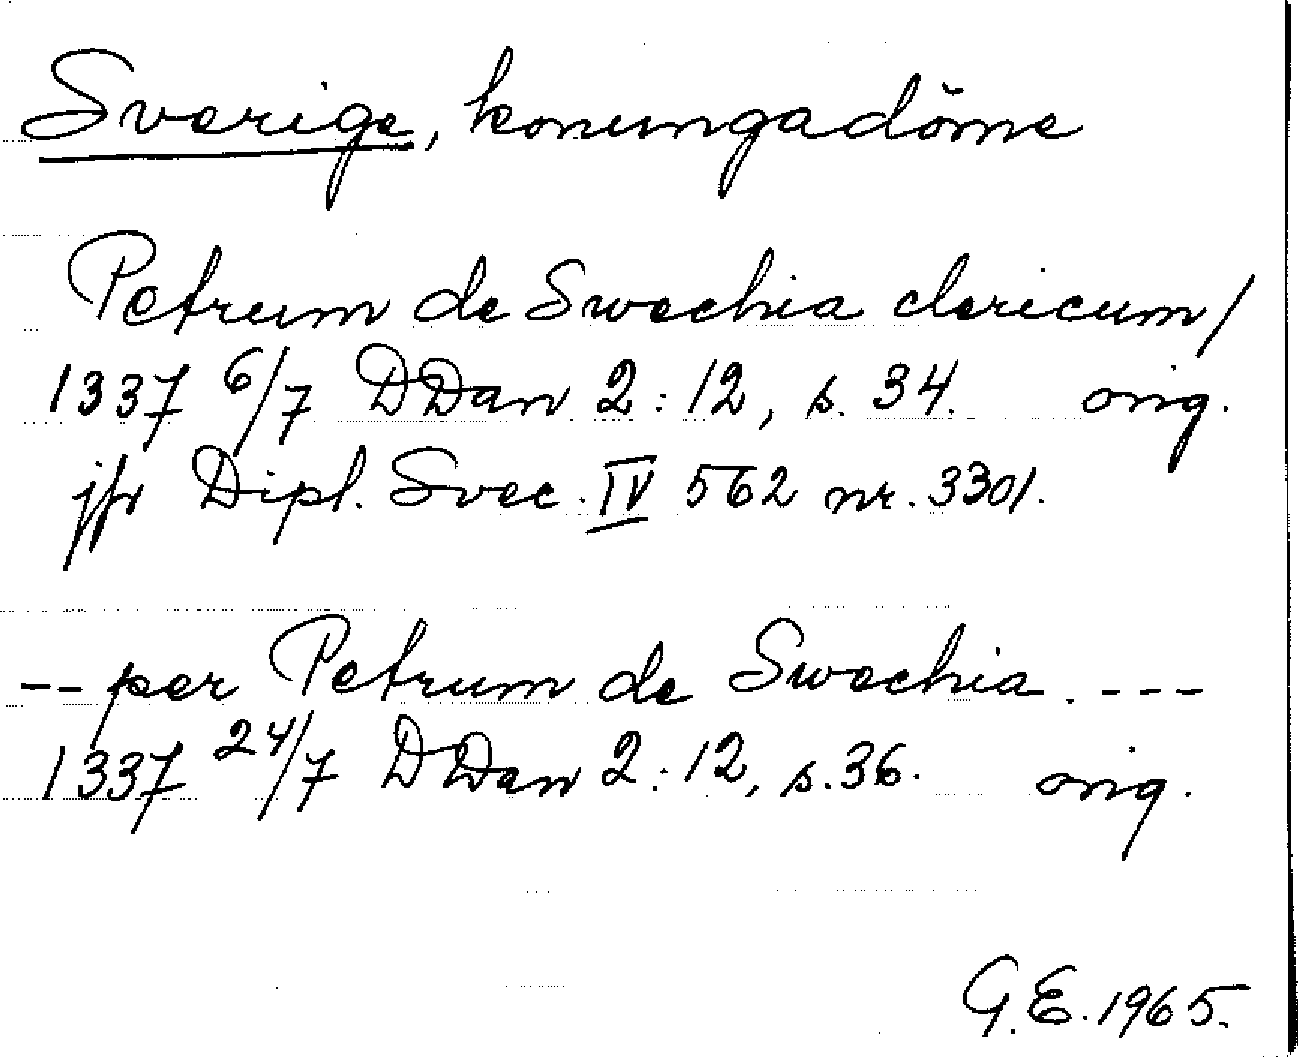 Sverige, konungadöme
Petrum de Swechia clericum/
1337 6/7 DDan 2:12, s. 34. orig.
jfr Dipl. Svec. IV 562 nr. 3301.
-- per Petrum de Swechia. ---
1337 24/7 DDan 2:12, s. 36. orig.
G.E. 1965.